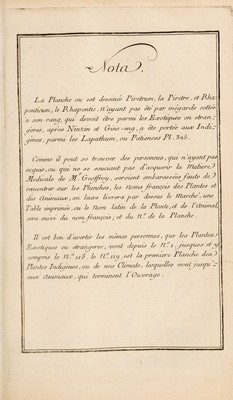 Nota.
La Planche ou est dessinée Piretrum, la Piretre, et Rha
ponticum, le Rhapontic, n'ayant pas été par mégarde cottée
a son rang, qui devoit être parmi les Exotiques ou etran-
géres, après Nintin et Gins-eng, a été portée aux Indi-
génes, parmi les Lapathum, ou Patiences Pl. 348.
Comme il peut se trouver des personnes, qui n'ayant pas
acquis, ou qui ne se souciant pas d'acquerir la Matiere
Medicale de Mr. Geoffroy, seroient embarassées faute de
rencontrer sur les Planches, les Noms françois des Plantes et
des Animaux, on leurs livrera par dessus le Marché, une
Table imprimée, ou le Nom latin de la Plante, et de l'Animal
sera suivi du nom françois; et du No. de la Planche.
Il est bon d'avertir les mêmes personnes, que les Plantes
Exotiques ou etrangeres, vont depuis le No. 1, jusques et y
compris le No. 118, le No. 119 est la premiere Planche des
Plantes Indigénes, ou de nos Climats, lesquelles vont jusqu'-
aux Animaux, qui terminent l'Ouvrage.